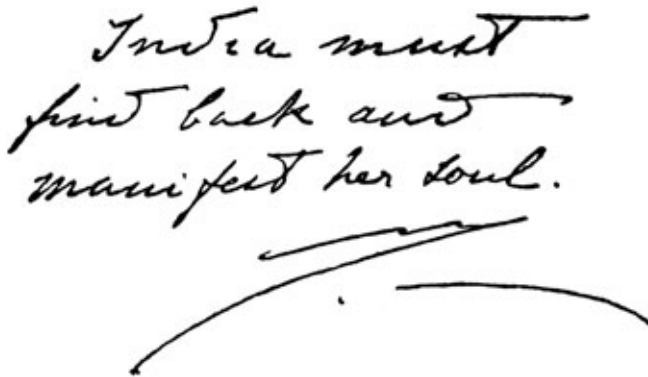 India must
find back and
manifest her soul.